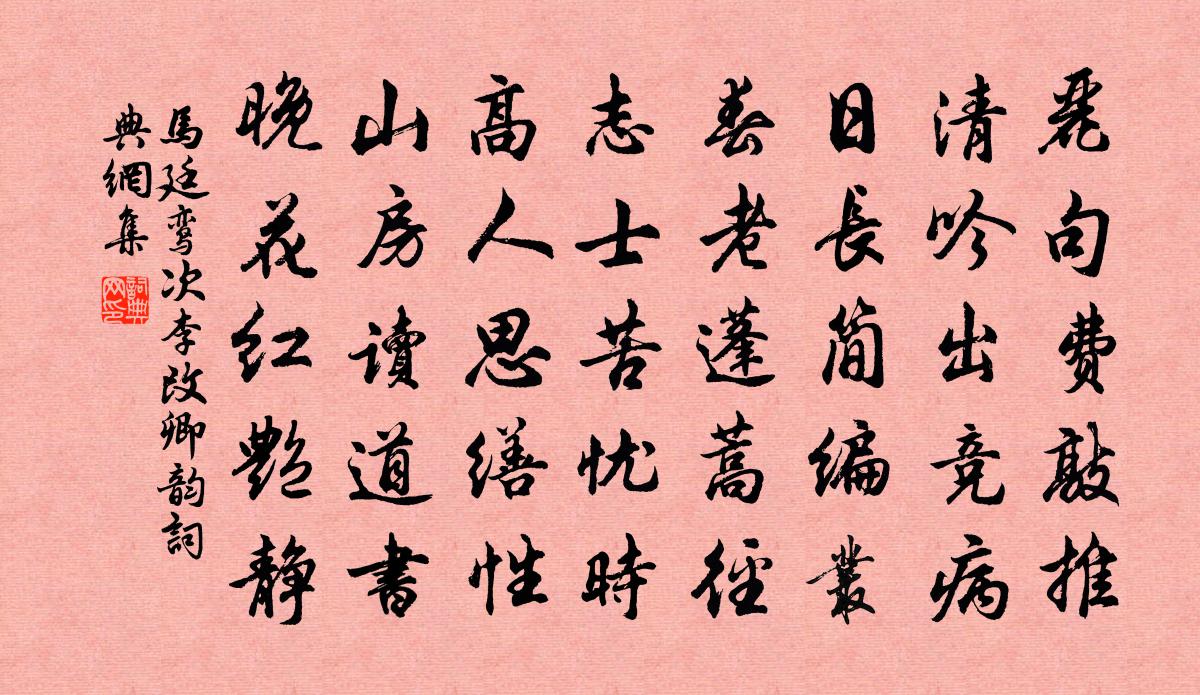 麗句費敲推
清吟出竞病
日長简编叢
春老蓬蒿徑
志士苦忧時
高人思繕性
山房讀道書
晚花红艷静
馬廷鸾次李改卿韵詞
典網集
詞典
网印